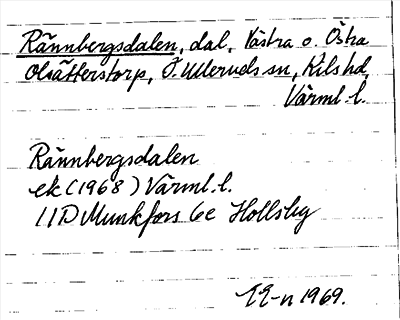 Rännbergsdalen, dal, Västra o. Östra
Olsätterstorp, Ö. Ulleruds sn, Kils hd,
Värml. l.
Rännbergsdalen
ek (1968) Värml. l.
11D Munkfors 6e Hollsby
1969.